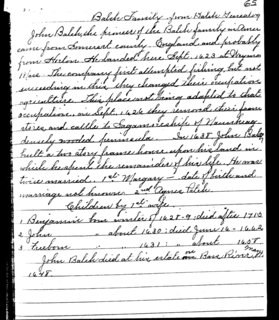 65
Balch Family from Balch Genealogy
John Balch, the pioneer of the Balch family in
came from Somerset county, England, and probably
from Horton. He landed here Sept. 1623 at
The company first attempted fishing but not
succeeding in this they changed their occupation
agriculture. This place not being adapted to that
occupation, in Sept. 1626 they removed their
stores and cattle to
densely wooded peninsula. In 1638 John Balch
built a two story frame house upon his land in
which he spent the remainder of his life. He was
twice married. 1st Margary - date of birth and
marriage not known. 2nd Agnes
Children by 1st wife.
1 Benjamin born winter of 1628-9, died after 1715
2 John " about 1630; died June 16 - 1662
3 Freeborn " 1631; " about 1658
John Balch died at his estate on Bass River, May
1648.